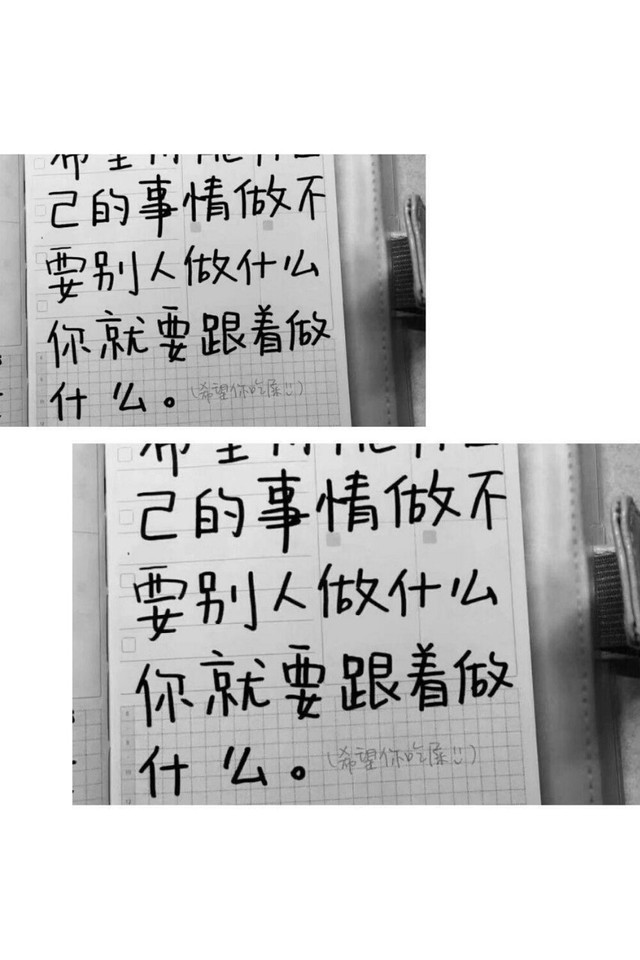 己的事情做不
要别人做什么
你就要跟着做
什么。(希望你吃屎!!)
己的事情做不
要别人做什么
你就要跟着做
什么。(希望你吃屎!!)